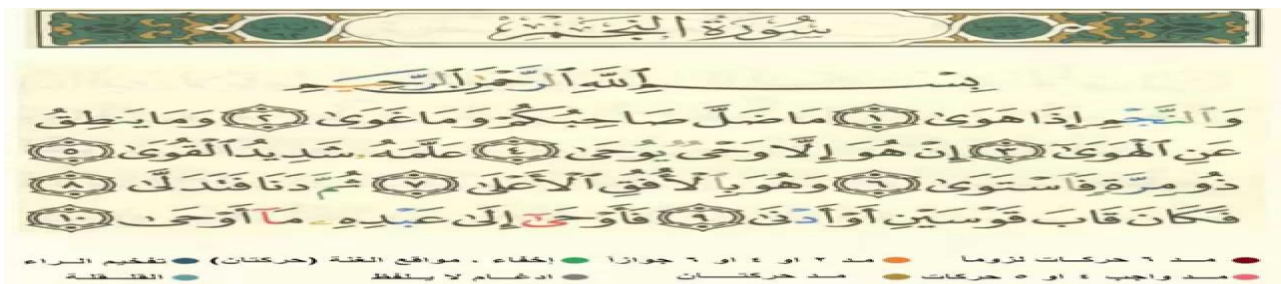 سُورَةُ النَّجْمِ
بِسْمِ ٱللَّهِ ٱلرَّحْمَٰنِ ٱلرَّحِيمِ
وَٱلنَّجْمِ إِذَا هَوَىٰ ١ مَا ضَلَّ صَاحِبُكُمْ وَمَا غَوَىٰ ٢ وَمَا يَنطِقُ
عَنِ ٱلْهَوَىٰٓ ٣ إِنْ هُوَ إِلَّا وَحْىٌ يُوحَىٰ ٤ عَلَّمَهُۥ شَدِيدُ ٱلْقُوَىٰ ٥
ذُو مِرَّةٍ فَٱسْتَوَىٰ ٦ وَهُوَ بِٱلْأُفُقِ ٱلْأَعْلَىٰ ٧ ثُمَّ دَنَا فَتَدَلَّىٰ ٨
فَكَانَ قَابَ قَوْسَيْنِ أَوْ أَدْنَىٰ ٩ فَأَوْحَىٰٓ إِلَىٰ عَبْدِهِۦ مَآ أَوْحَىٰ ١٠
مد ٦ حركات لزوما مد ٢ او ٤ او ٦ جوازا إخفاء ، مواقع الغنة (حركتان) تفخيم الراء
مد واجب ٤ او ٥ حركات مد حركتان ادغام لا يلفظ القلقلة